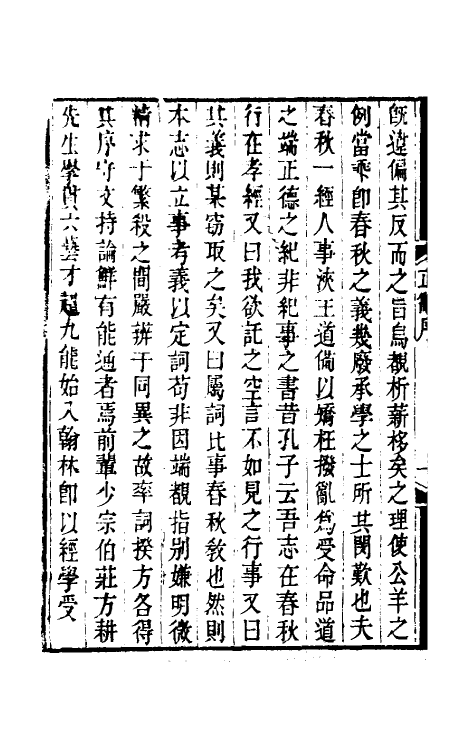 既違偏其反而之旨烏覩析薪杝矣之理使公羊之
例當乖卽春秋之義幾廢承學之士所共閔歎也夫
春秋一經人事浹王道備以矯枉撥亂爲受命品道
之端正德之紀非紀事之書昔孔子云吾志在春秋
行在孝經又曰我欲託之空言不如見之行事又曰
其義則某竊取之矣又曰屬詞比事春秋敎也然則
本志以立事考義以定詞苟非因端覩指別嫌明微
精求于繁殺之間嚴辨于同異之故率詞揆方各得
其序守文持論鮮有能通者焉前輩少宗伯莊方耕
先生學貫六藝才超九能始入翰林卽以經學受